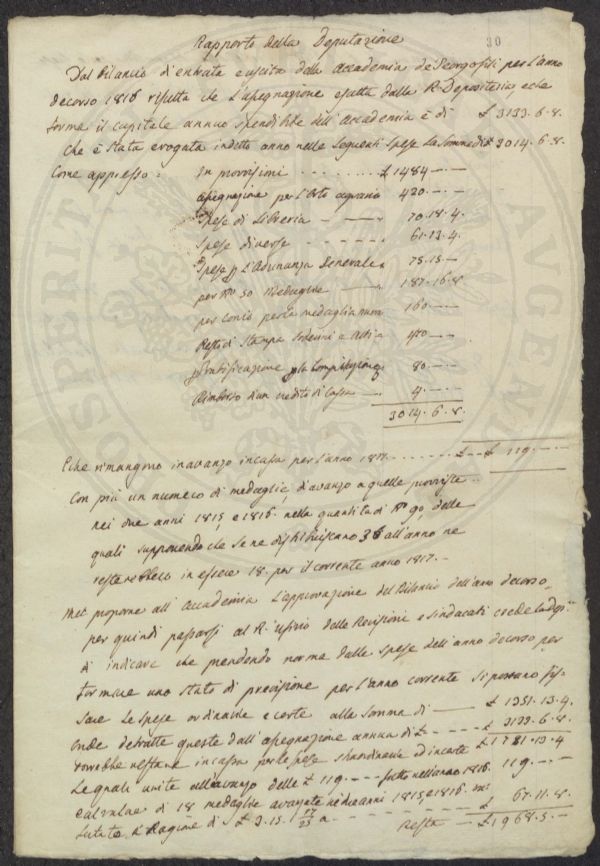 30
Rapporto della Deputazione
Dal Bilancio d'entrata e uscita della Accademia de Georgofili per l'anno
decorso 1816 risulta che L'assegnazione fatta dalla R. Depositeria, e che
forma il capitale annuo spendibile dell'Accademia è di £ 3133.6.8.
che è stata erogata in detto anno nelle seguenti spese La Somma di £ 3014.6.8.
Come appresso:
In provvisioni £ 1484.--.--
Assegnazione per l'Orto agrario 420.--.--
Spese di Libreria 70.18.4.
Spese diverse 61.13.4.
Spese p L'Adunanza Generale 75.15.--
per No 50 Medaglie 187.16.8
per conto per la medaglia 160.--
Resto di Stampa 480.--
p Gratificazione p la Compilazione 80.--
Rimborso d'un credito di Cassa 4.--
3014.6.8.
E che rimangono in avanzo in cassa per l'anno 1817. £ 119.--
Con più un numero di medaglie, d'avanzo a quelle provviste
nei due anni 1815 e 1816. nella quantità di No 90, delle
quali supponendo che se ne distribuiscano 36 all'anno ne
resterebbero in essere 18. per il corrente anno 1817.--
Nel proporre all'Accademia L'approvazione del Bilancio dell'anno decorso
per quindi passarsi al R. ufizio delle Revisioni e sindacati crede
di indicare che prendendo norma dalle spese dell'anno decorso per
formare uno stato di previsione per l'anno corrente si possano fis-
sare Le spese ordinarie e certe alla somma di £ 1351.13.4.
onde detratte queste dall'assegnazione annua di £ 3133.6.8.
verrebbe restare in cassa per le spese straordinarie ed incerte £ 1781.13.4
Le quali unite all'avanzo delle £ 119.-- fatto nell'anno 1816. 119.--
e al valore di 18 medaglie avanzate nei due anni 1815 e 1816.
lutate a Ragione di £ 3.15.1 17/25 a £ 67.11.8.
Resta £ 1968.5.--